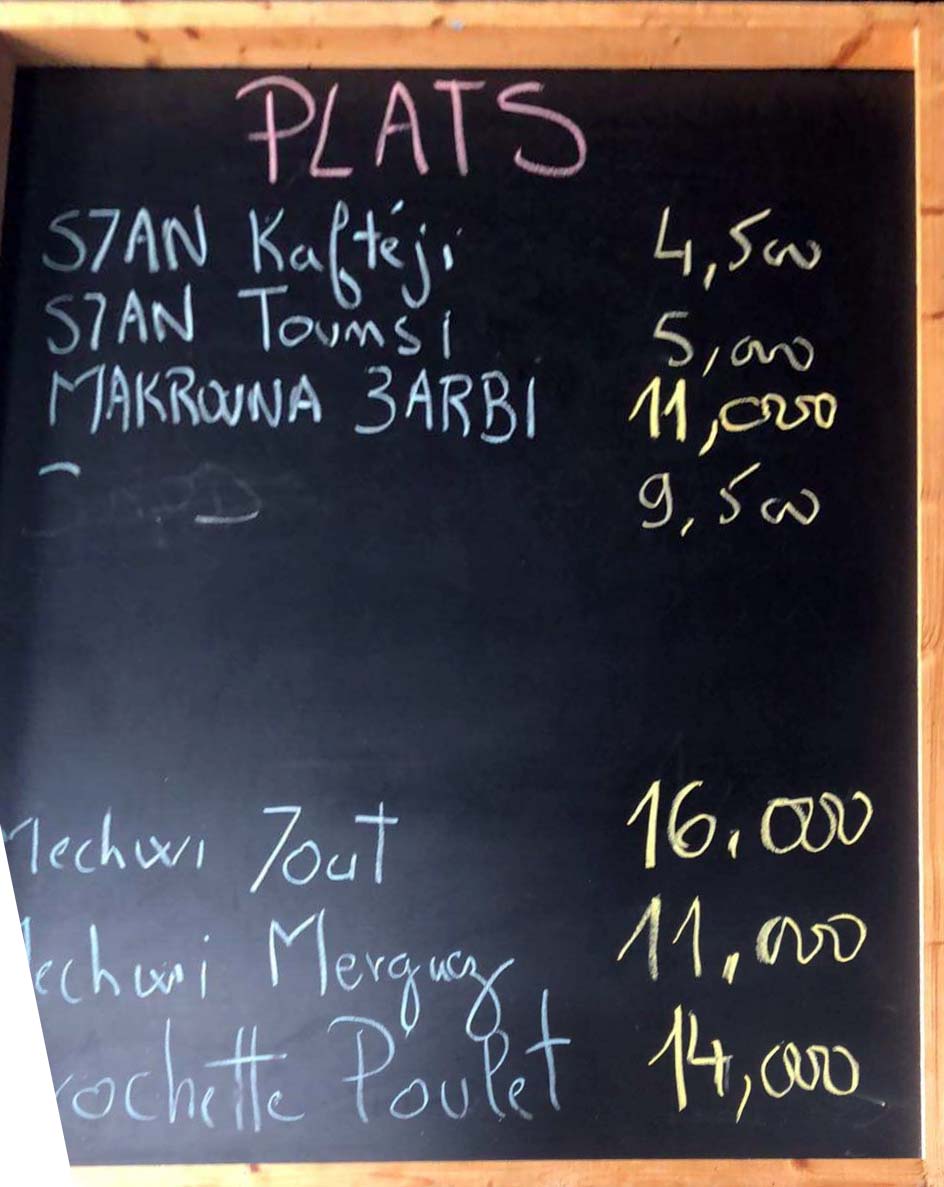 PLATS
S7AN Kaftéji 4,500
S7AN Tounsi 5,000
MAKROUNA 3ARBI 11,000
9,500
Mechwi 7out 16,000
Mechwi Merguez 11,000
rochette Poulet 14,000